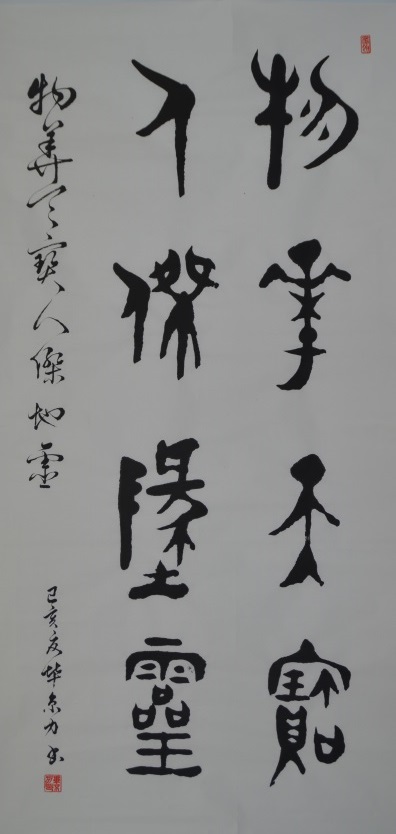 物華天寶
人傑墬靈
物華天寶人傑地靈
己亥夏華京力书